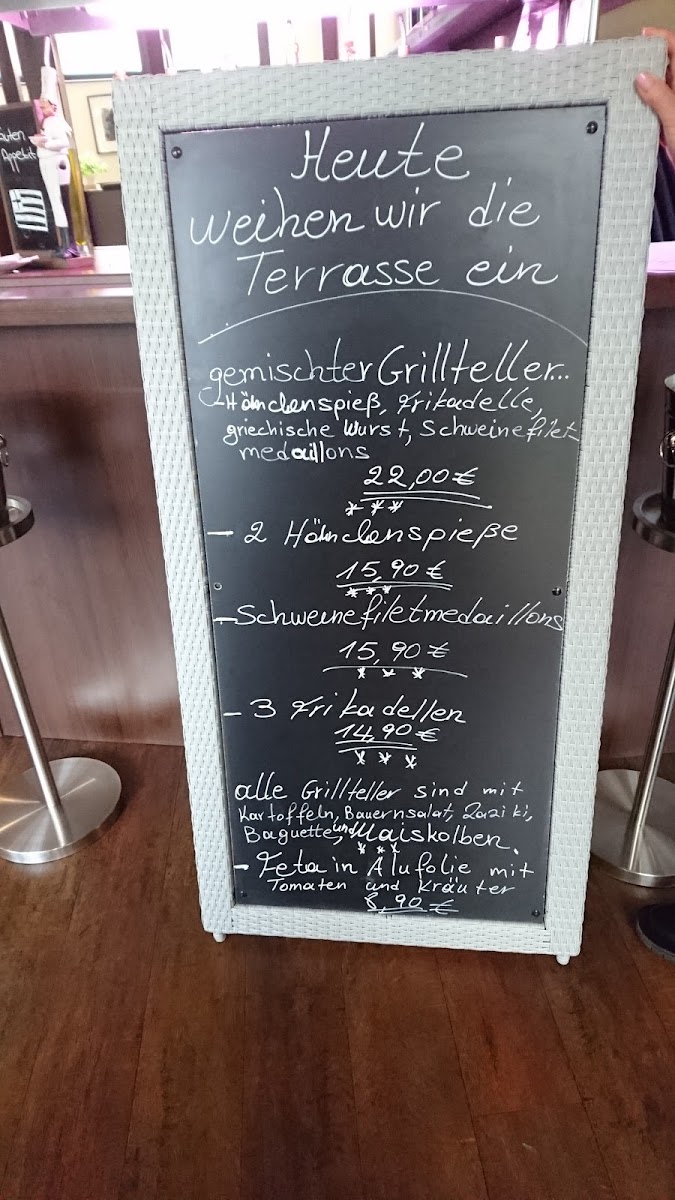 Guten
Appetit
Heute
weihen wir die
Terrasse ein
gemischter Grillteller...
- Hänchenspieß, Frikadelle,
griechische Wurst, Schweinefilet
medaillons
22,00 €
***
- 2 Hänchenspieße
15,90 €
***
- Schweinefiletmedaillons
15,90 €
***
- 3 Frikadellen
14,90 €
***
alle Grillteller sind mit
Kartoffeln, Bauernsalat, Zaziki,
Baguette und Maiskolben.
***
- Feta in Alufolie mit
Tomaten und Kräuter
8,90 €